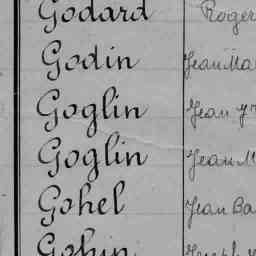 Godard Roger
Godin Jean Ma
Goglin Jean
Goglin Jean M
Gohel Jean Ba
Gohin Joseph